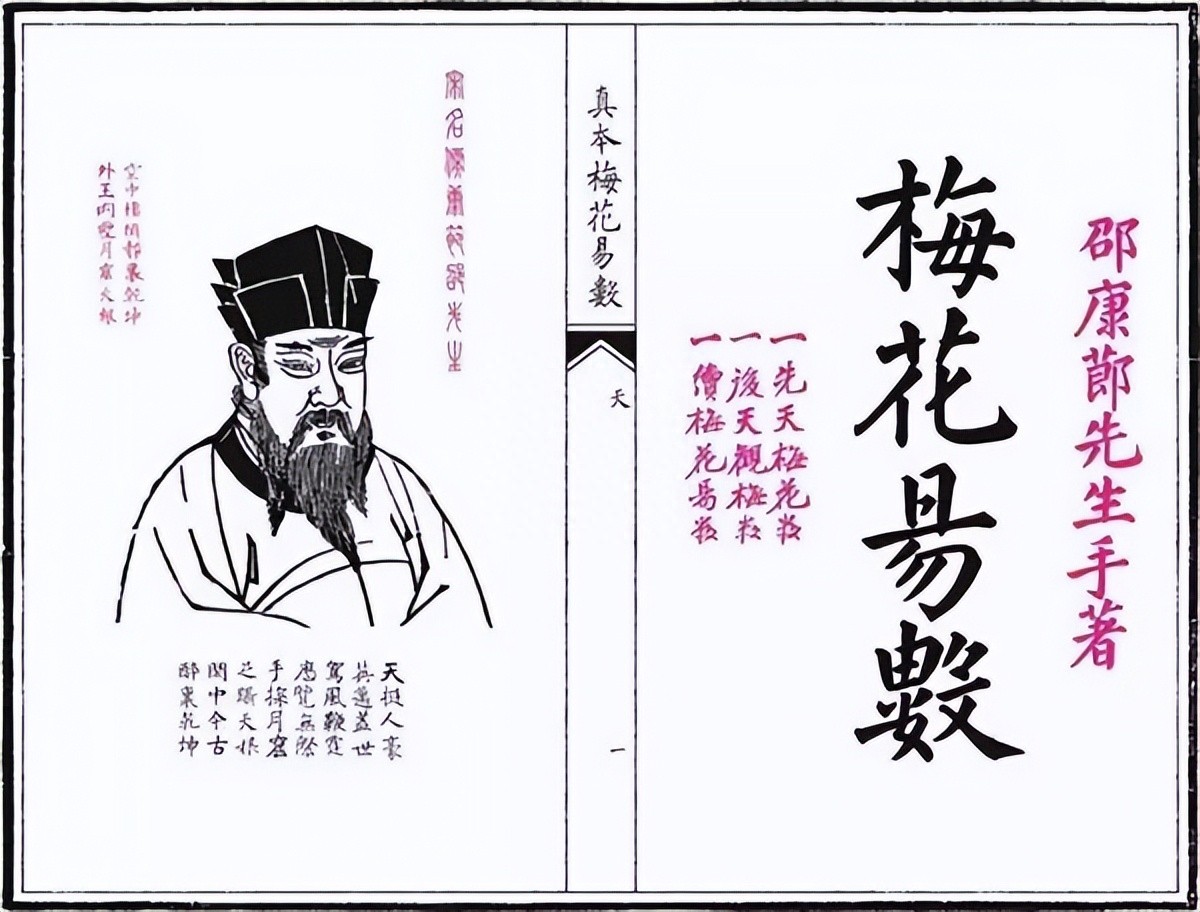 邵康莭先生手著
梅花易數
一先天梅花数
一後天觀梅数
一價梅花易数
真本梅花易數
天
一
宋名儒康節邵先生
空中樓閣都裏乾坤
外王内聖月窟天根
天挺人豪
英邁蓋世
駕風鞭霆
歷覽無際
手探月窟
足躡天根
閒中今古
醉裏乾坤